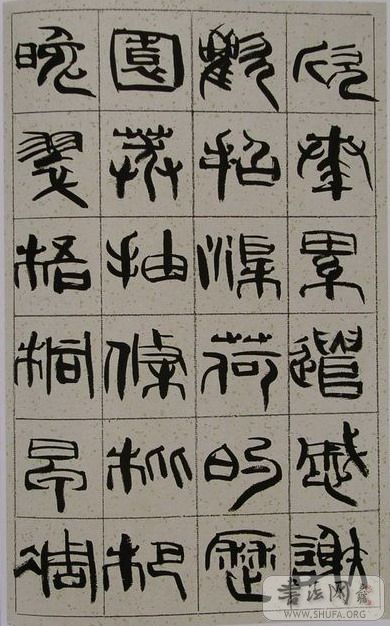 欣奏累遣慼謝
歡招渠荷的歷
園莽抽條枇杷
晚翠梧桐早凋
書法网
WWW.SHUFA.ORG